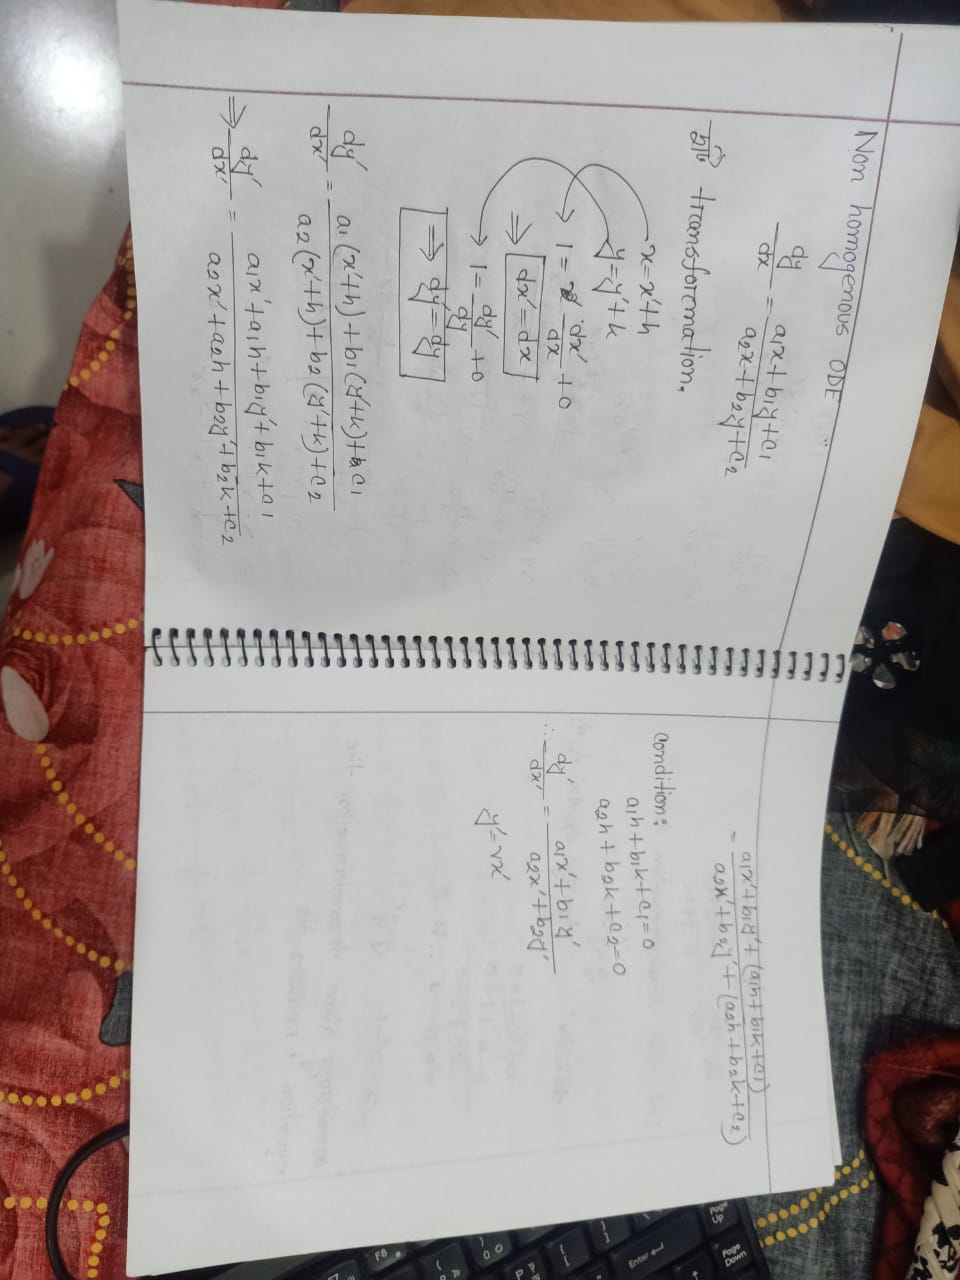 Non homogenous ODE
dy/dx = a1x+b1y+c1 / a2x+b2y+c2
transformation.
x=x'+h
y=y'+k
1= dx'/dx +0
⇒ dx'=dx
1= dy'/dy +0
⇒ dy'=dy
dy'/dx' = a1(x'+h)+b1(y'+k)+c1 / a2(x'+h)+b2(y'+k)+c2
⇒ dy'/dx' = a1x'+a1h+b1y'+b1k+c1 / a2x'+a2h+b2y'+b2k+c2
= a1x'+b1y'+(a1h+b1k+c1) / a2x'+b2y'+(a2h+b2k+c2)
condition:
a1h+b1k+c1=0
a2h+b2k+c2=0
∴ dy'/dx' = a1x'+b1y' / a2x'+b2y'
y'=vx'
Page Up
Page Down
Enter
F8